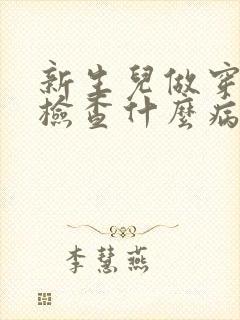 新生兒做穿
檢查什麼病
李慧燕